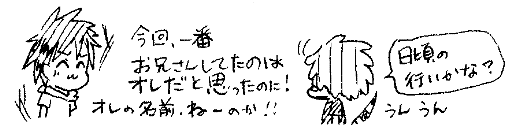 今回、一番
お兄さんしてたのは
オレだと思ったのに!
オレの名前、ねーのか!!
日頃の
行いかな?
うん うん